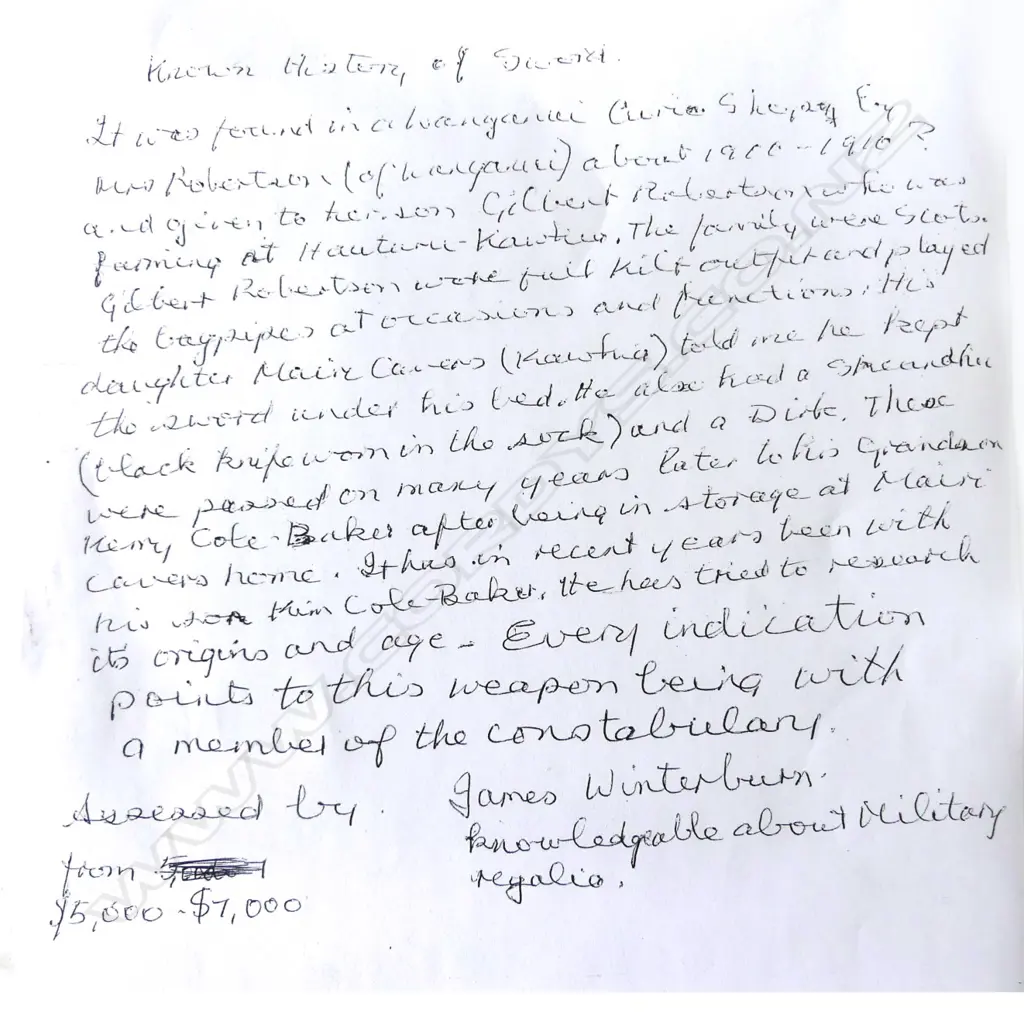 Known History of Sword.
It was found in a Wanganui Curio Shop by
Mrs Robertson (of Wanganui) about 1900 - 1910?
and given to her son Gilbert Robertson who was
farming at Hauturu - Kawhia. The family were Scots.
Gilbert Robertson wore full Kilt outfit and played
the bagpipes at occasions and functions. His
daughter Mairi Cavers (Kawhia) told me he kept
the sword under his bed. He also had a
(black knife worn in the sock) and a Dirk. These
were passed on many years later to his Grandson
Kerry Cole-Baker after being in storage at Mairi
Cavers home. It has in recent years been with
his son Kim Cole-Baker. He has tried to research
its origins and age - Every indication
points to this weapon being with
a member of the constabulary.
Assessed by. James Winterburn.
knowledgeable about Military
from regalia.
$5,000 - $7,000